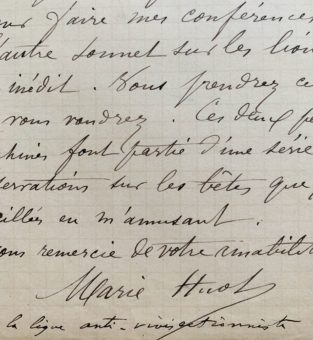 faire mes conférences
autre sonnet sur les lions
inédit. Vous prendrez ce
vous voudrez. Ces deux pe
font partie d'une série
servations sur les bêtes que j
cueillies en m'amusant.
ous remercie de votre amabilité
Marie Huot
la ligue anti-vivisectionniste